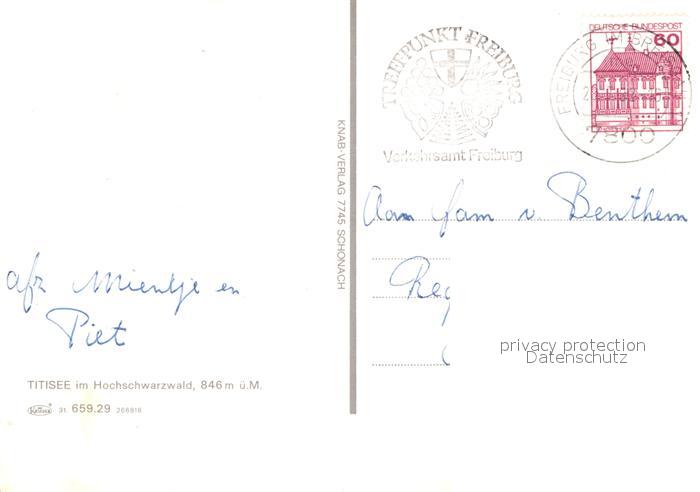 afz Mientje en
Piet
TITISEE im Hochschwarzwald, 846 m ü.M.
31. 659.29 266816
KNAB-VERLAG 7745 SCHONACH
TREFFPUNKT FREIBURG
Verkehrsamt Freiburg
DEUTSCHE BUNDESPOST
60
FREIBURG IM BRE
7800
Aan fam v. Benthem
Reg
privacy protection
Datenschutz